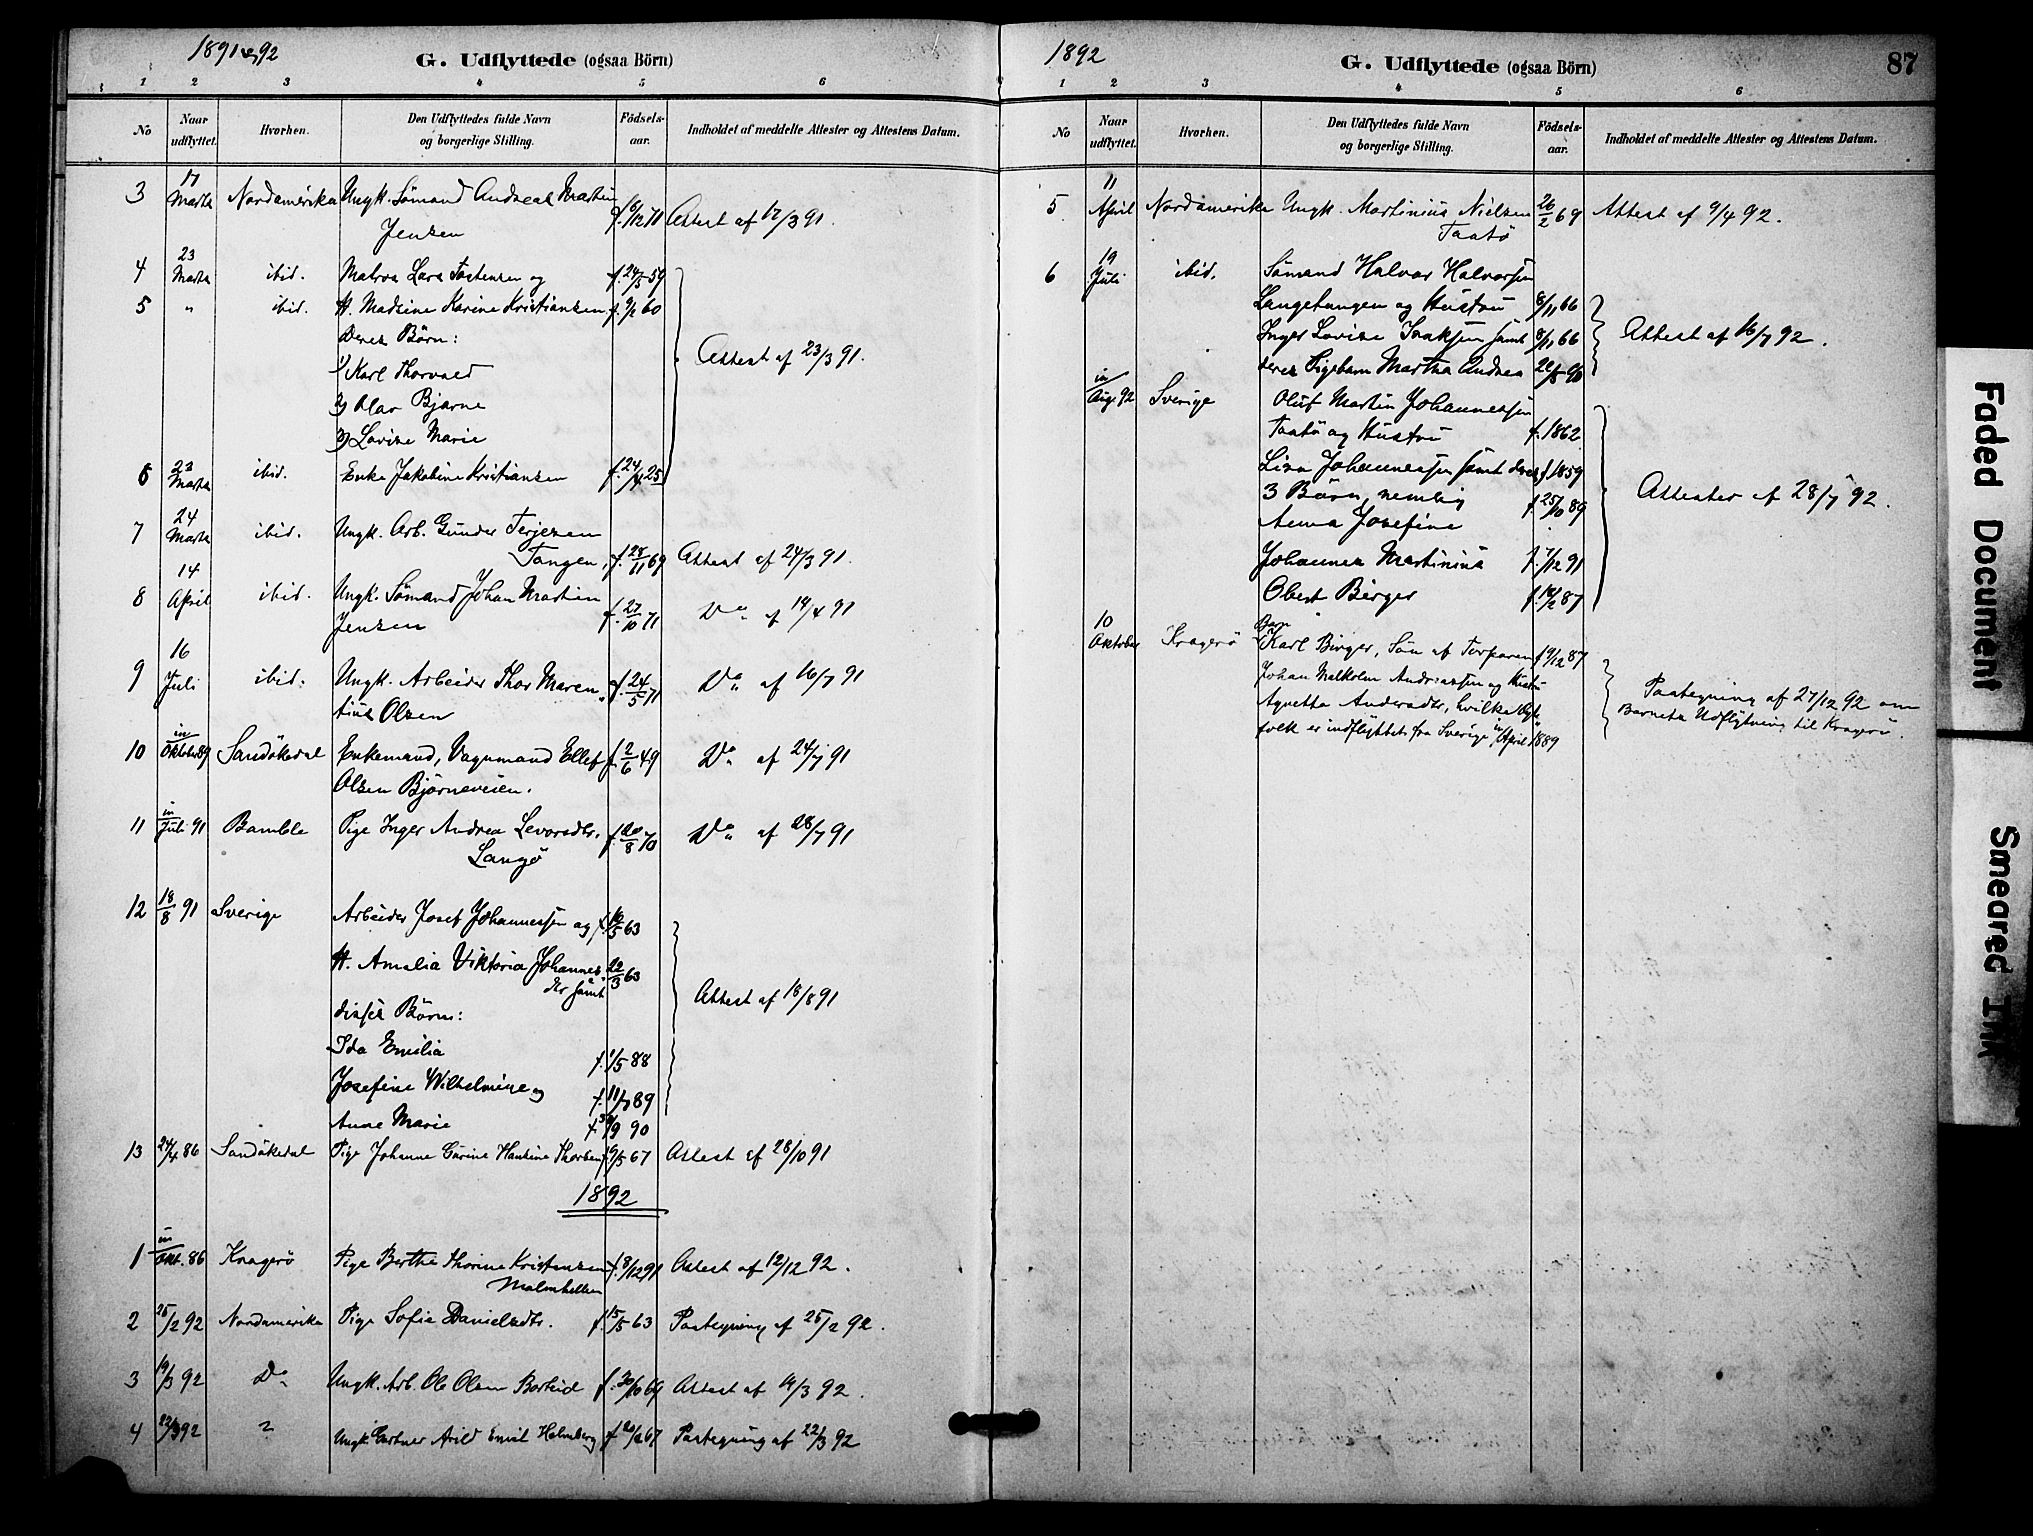 1891 & 92
G. Udflyttede (ogsaa Börn)
1 2 3 4 5 6
No
Naar udflyttet.
Hvorhen.
Den Udflyttedes fulde Navn og borgerlige Stilling.
Födsels-aar.
Indholdet af meddelte Attester og Attestens Datum.
3 17 Marts Nordamerika Ungk. Sømand Andreas Martin f. 6/12 71 Attest af 17/3 91.
Jensen
4 23 Marts ibid. Matros Lars Tostensen og f. 24/5 59
5 " ibid. H. Madsine Karine Kristiansen, f. 9/2 60
Deres Børn:
1) Karl Thorvald Attest af 23/3 91.
2) Olav Bjarne
3) Lovise Marie
6 23 Marts ibid. Enke Jakobine Kristiansen f. 24/4 25
7 24 Marts ibid. Ungk. Arb. Gunder Terjesen
Tangen, f. 28/11 69 Attest af 24/3 91.
8 14 April ibid. Ungk. Sømand Johan Martin
Jensen f. 27/10 71 Do af 14/4 91
9 16 Juli ibid. Ungk. Arbeider Thor Maren- f. 24/5 71 Do af 16/7 91
tius Olsen
10 in Oktober 89 Sandökedal Enkemand, Vognmand Ellef f. 2/6 49 Do af 24/7 91
Olsen Bjørneveien.
11 in Juli 91 Bamble Pige Inger Andrea Levorsdtr. f. 20/8 70 Do af 28/7 91
Langö
12 18/8 91 Sverige Arbeider Josef Johannessen og f. 10/5 63
H. Amalia Viktoria Johannes- 22/3 63
dtr samt
disses Børn: Attest af 18/8 91
Ida Emilia f. 1/5 88
Josefine Wilhelmine og f. 11/7 89
Anne Marie f. 30/9 90
13 24/4 86 Sandökedal Pige Johanne Gurine Hansine Thorsen f. 9/5 67 Attest af 28/10 91
1892
1 in Okt. 86 Kragerö Pige Berthe Thorine Kristensen f. 8/12 91 Attest af 12/12 92.
Malmhellen
2 25/2 92 Nordamerika Pige Sofie Danielsdtr. f. 15/5 63 Paategning af 25/2 92.
3 19/3 92 Do Ungk. Arb. Ole Olsen Borteid f. 30/10 69 Attest af 19/3 92.
4 22/3 92 " Ungk. Gartner Arild Emil Holmberg f. 20/2 67 Paategning af 22/3 92
1892
G. Udflyttede (ogsaa Börn)
87
1 2 3 4 5 6
No
Naar udflyttet.
Hvorhen.
Den Udflyttedes fulde Navn og borgerlige Stilling.
Födsels-aar.
Indholdet af meddelte Attester og Attestens Datum.
5 11 April Nordamerika Ungk. Martinius Nielsen 26/2 69 Attest af 9/4 92.
Taatö
6 19 Juli ibid. Sømand Halvor Halvorsen
Langetangen og Hustru 8/11 66
Inger Lovise Isaksen samt 8/1 66 Attest af 16/7 92.
deres Pigebarn Martha Andrea 22/5 90
in Aug. 92 Sverige Oluf Martin Johannessen
Taatö og Hustru f. 1862
Lisa Johannessen samt deres f. 1859
3 Börn, nemlig f. 25/10 89 Attester af 28/7 92.
Anna Josefine
Johannes Martinius f. 7/12 91
Obert Birger f. 14/2 87
10 Oktober Kragerö Barn Karl Birger, Søn af Torparen f. 9/12 87
Johan Malkolm Andreassen og Hustru
Agnetha Andersdtr, hvilke Ægte-
folk er indflyttet fra Sverige in April 1889
Paategning af 27/12 92 om
Barnets Udflytning til Kragerö.
Faded Document
Smeared Ink